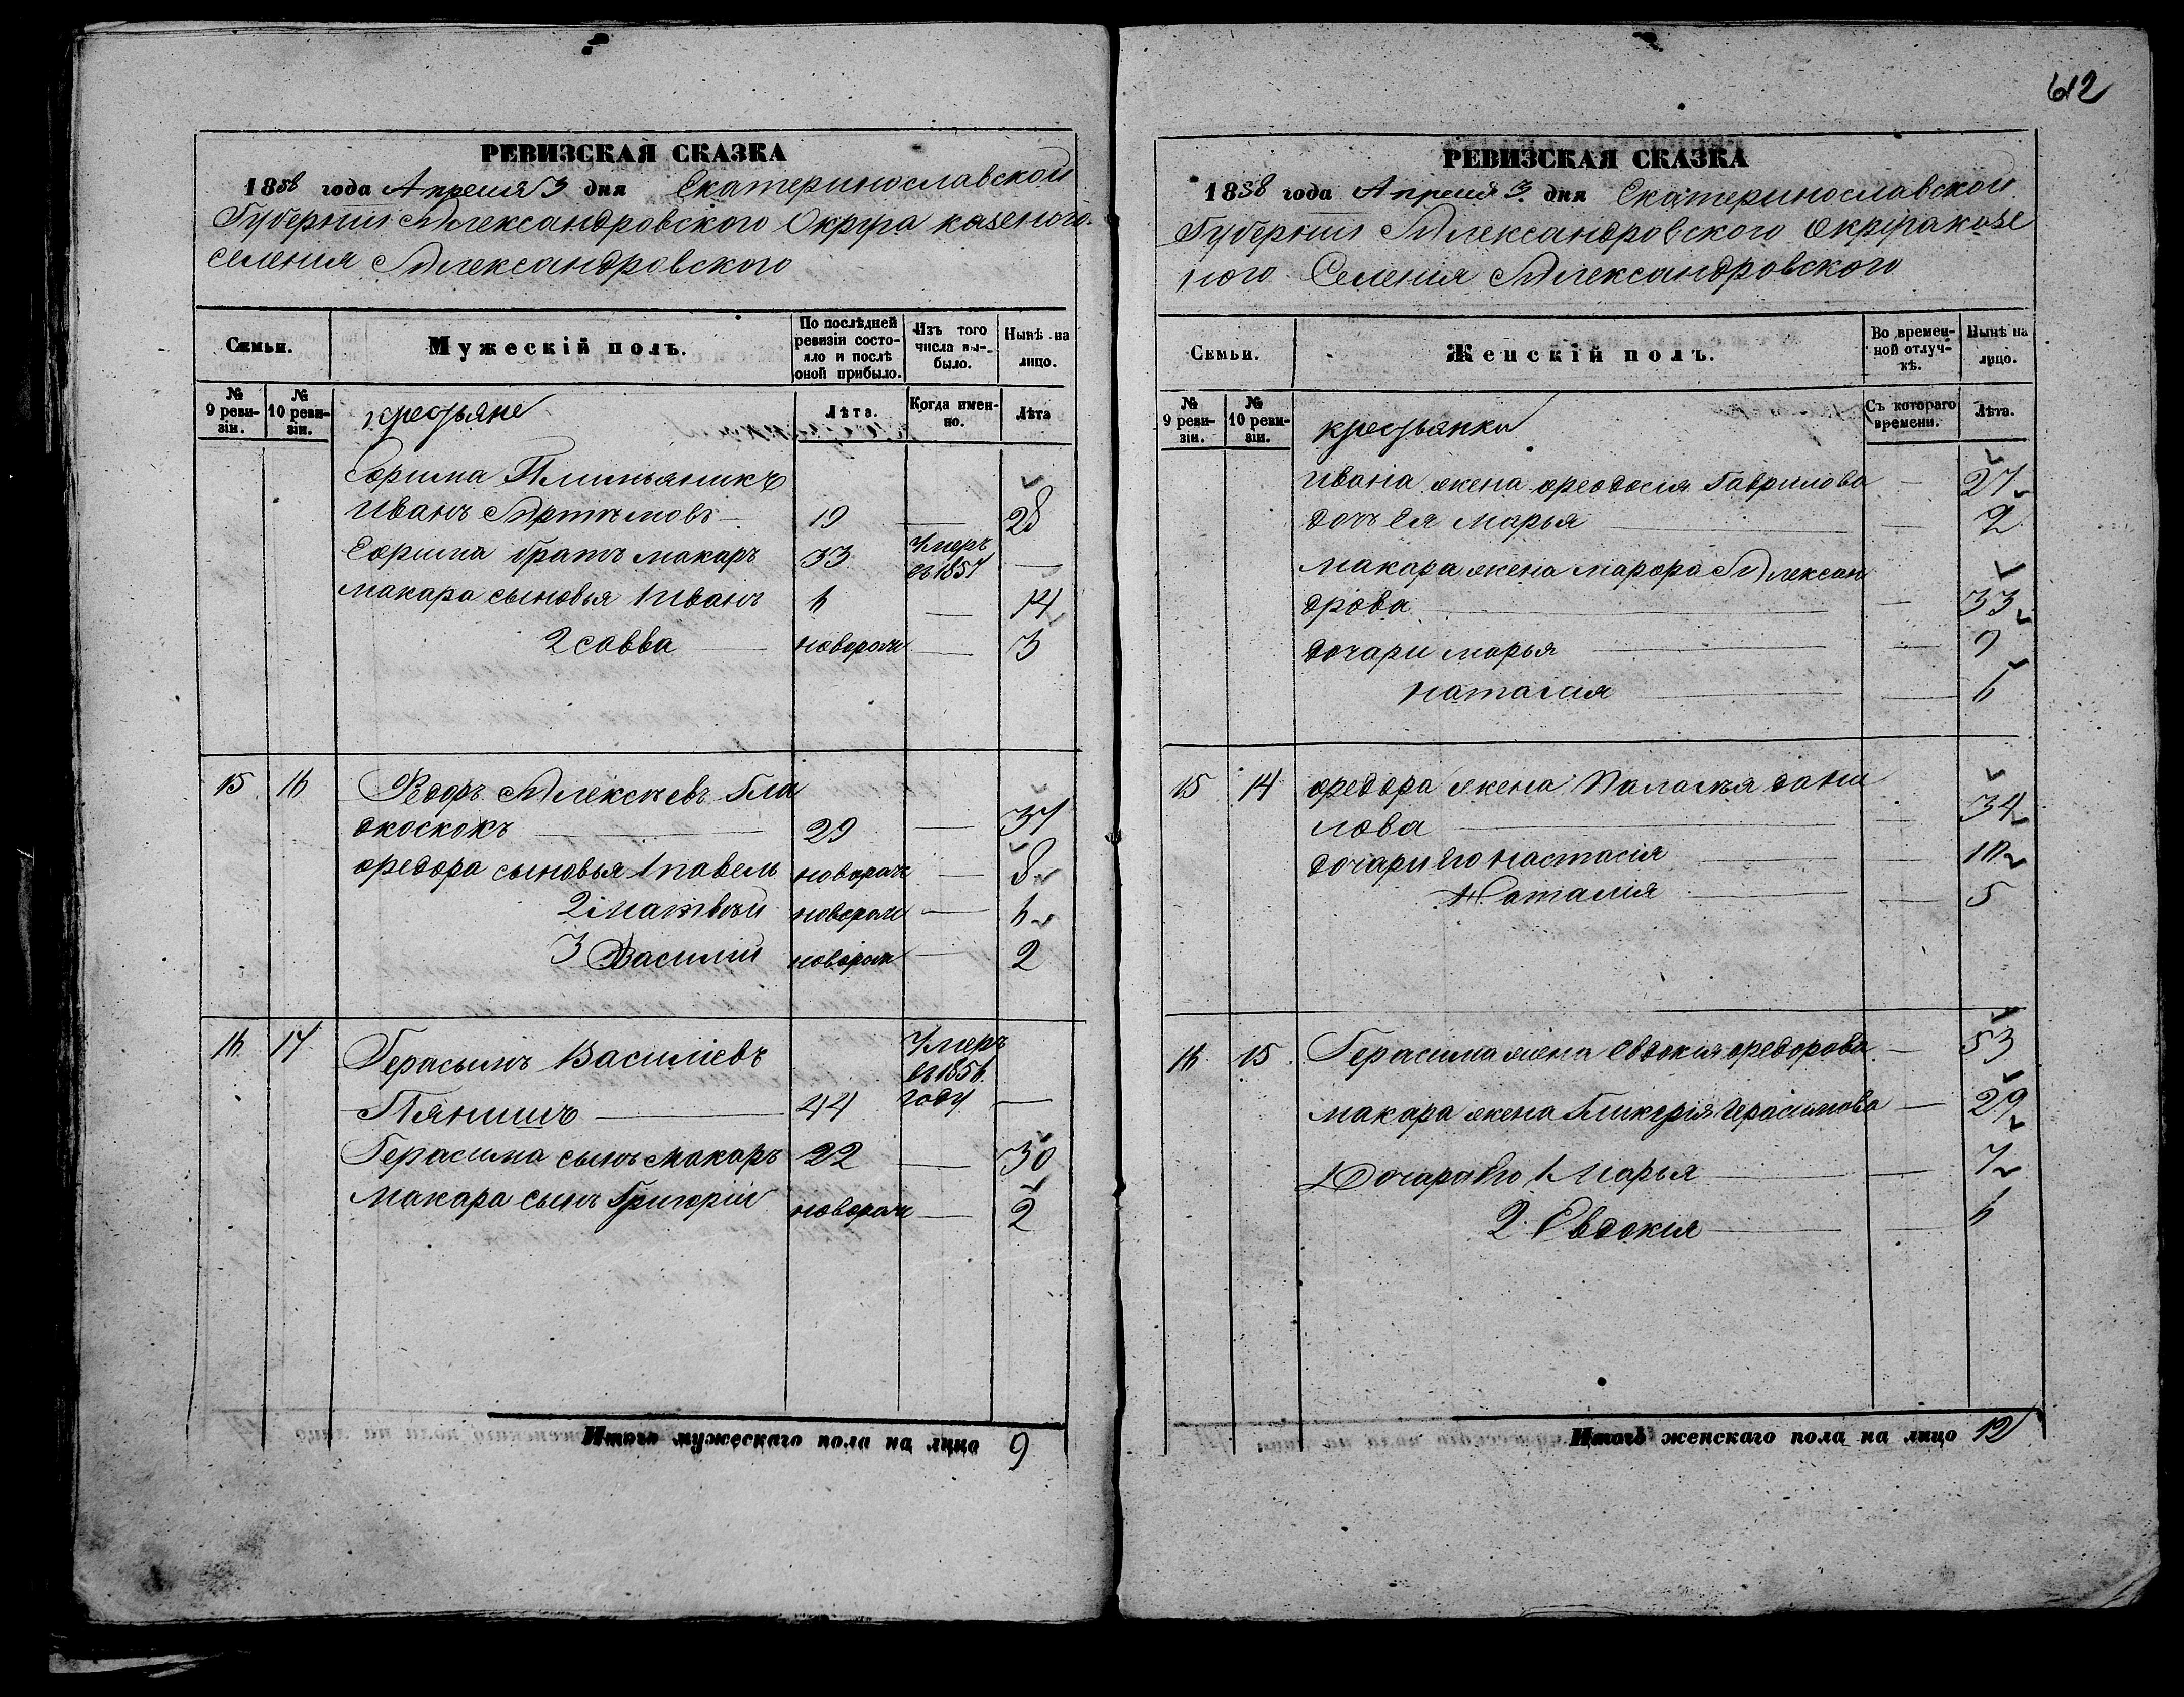 612
РЕВИЗСКАЯ СКАЗКА
1858 года Апреля 3 дня Екатеринославской
Губернии Александровского Округа казеного
селения Александровского
Семьи.
Мужескій полъ.
По послѣдней ревизіи состояло и послѣ оной прибыло.
Изъ того числа выбыло.
Нынѣ на лицо.
№ 9 ревизіи.
№ 10 ревизіи.
крестьяне
Лѣта.
Когда именно.
Лѣта
Ефима
Иванъ Артемовъ 19 — 28
Ефима братъ макаръ 33 Умеръ въ 1857 —
макара сыновья 1 Иванъ 6 — 14
2 савва — новорож — 3
15 16 Федоръ Алексѣевъ Гла
дкоскокъ — 29 — 37
федора сыновья 1 павелъ новорож — 8
2 Матвѣй новорож — 6
3 Василій новорож — 2
16 17 Герасымъ Василіевъ Умеръ въ 1856 году
— 44 —
Герасима сынъ Макаръ 22 — 30
Макара сынъ Григорій новорож — 2
Итого мужескаго пола на лицо 9
РЕВИЗСКАЯ СКАЗКА
1858 года Апреля 3 дня Екатеринославской
Губернии Александровского Округа казе
ного Селения Александровского
Семьи.
Женскій полъ.
Во временной отлучкѣ.
Нынѣ на лицо.
№ 9 ревизіи.
№ 10 ревизіи.
крестьянки
Съ котораго времени.
Лѣта.
Ивана жена феодосия Гаврилова — 27
дочь Ея Марья — 2
Макара жена марфа Алексан
дрова — 33
дочари марья — 9
наталия — 6
15 14 федора жена Палагѣя дани
лова — 34
дочари Его настасія — 10
Наталія — 5
16 15 Герасима жена Евдокия федорова — 53
макара жена Гликерія Герасимова — 29
Дочари Его 1 Марья — 7
2 Евдокія — 6
Итогъ женскаго пола на лицо 12